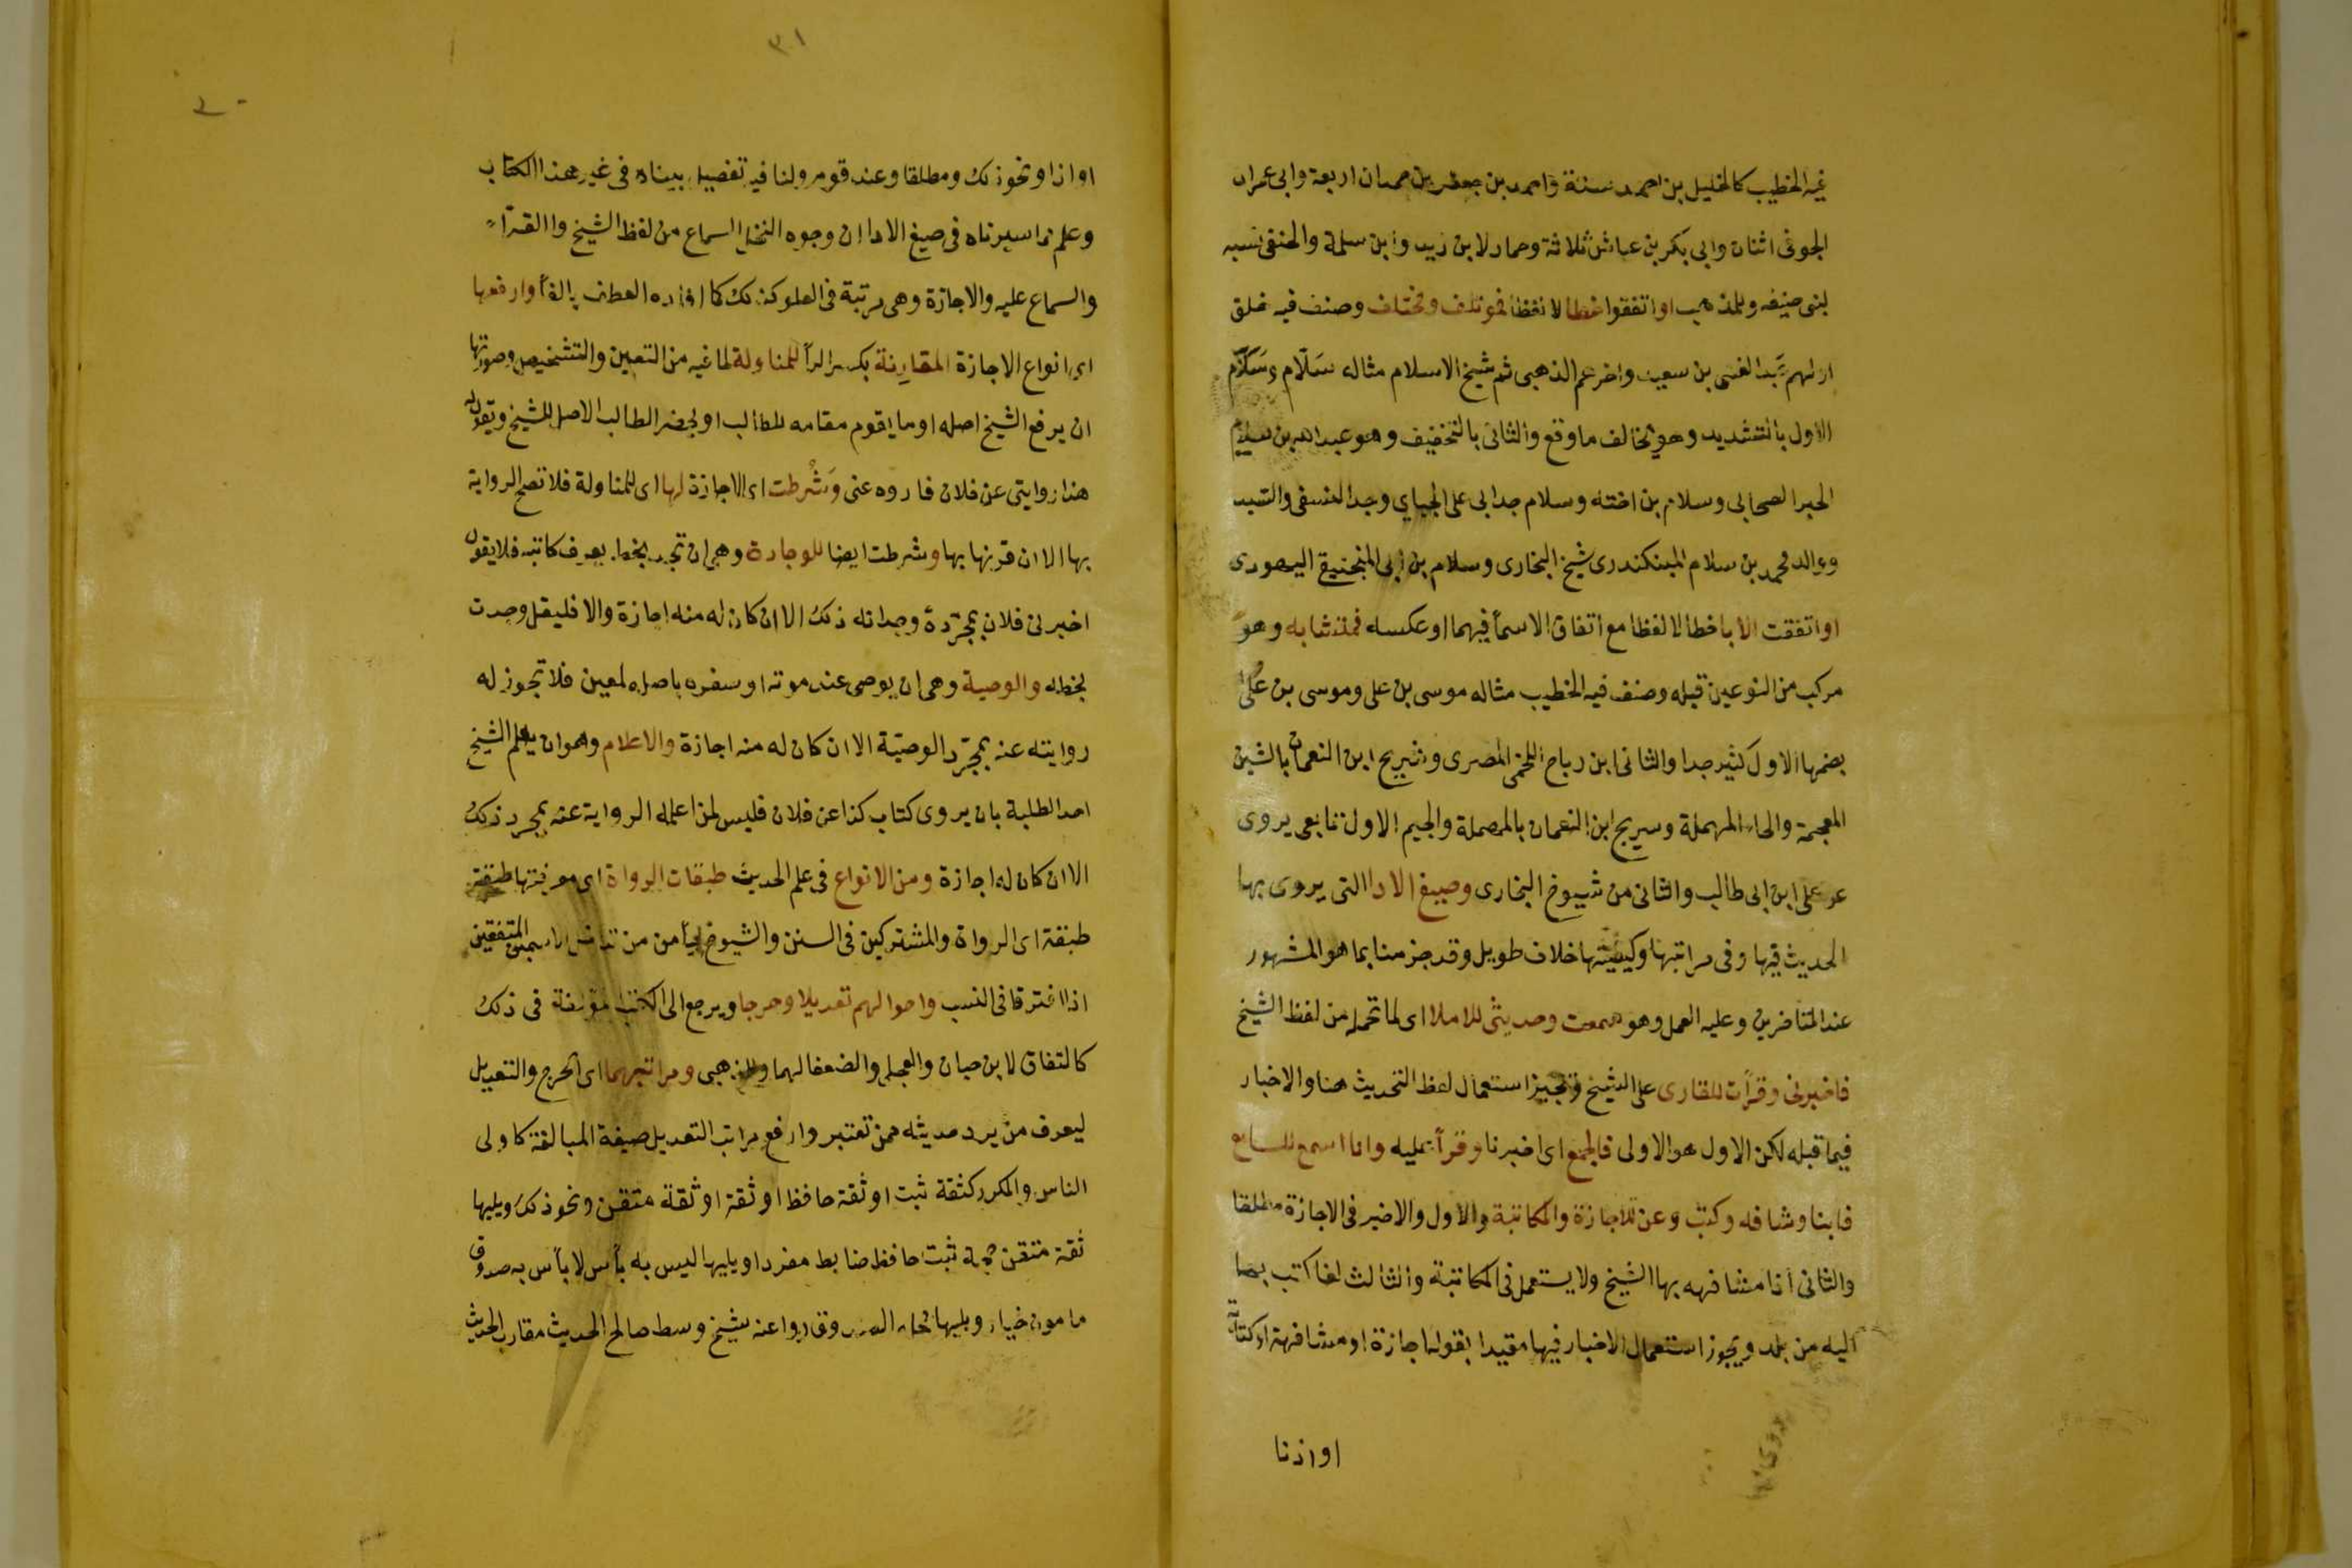 فيه الخطيب كالخليل بن احمد ستة واحمد بن جعفر بن حمدان اربعة وابى عمران
الجونى اثنان وابى بكر بن عياش ثلاثة وحماد لابن زيد وابن سلمة والحنفى نسبه
لبنى حنيفه وللمذهب او اتفقوا خطا لا لفظا فموتلف ومختلف وصنف فيه خلق
اولهم عبد الغنى بن سعيد واخرهم الذهبى ثم شيخ الاسلام مثاله سَلّام وسَلَام
الاول بالتشديد وهو مخالف ما وقع والثانى بالتخفيف وهو عبد الله بن سلام
الحبر الصحابى وسلام بن اخته وسلام جد ابى على الجباي وجد النسفى والسيد
ووالد محمد بن سلام البيكندرى شيخ البخارى وسلام بن ابى المنجنيق اليهودى
او اتفقت الابا خطا لا لفظا مع اتفاق الاسمأ فيهما او عكسه فمتشابه وهو
مركب من النوعين قبله وصنف فيه الخطيب مثاله موسى بن على وموسى بن عُلى
بضمها الاول كثير جدا والثانى ابن رباح اللخمى المصرى وشريح ابن النعمان بالشين
المعجمة والحاء المهملة وسريج ابن النعمان بالمهملة والجيم الاول تابعى يروى
عن على ابن ابى طالب والثانى من شيوخ البخارى وصيغ الادا التى يروى بها
الحديث فيها وفى مراتبها وكيفيتها خلاف طويل وقد جزمنا بما هو المشهور
عند المتاخرين وعليه العمل وهو سمعت وحديثى للاملا اى لما تحمله من لفظ الشيخ
فاخبرنى وقرأت للقارى على الشيخ وتجيز استعمال لفظ التحديث هنا والاخبار
فيما قبله لكن الاول هو الاولى فالجمع اى اخبرنا وقرأ عليه وانا اسمع للسامع
فانبنا وشافه وكتب وعن للاجازة والمكاتبة والاول والاخير فى الاجازة مطلقا
والثانى اذا مشافهه بها الشيخ ولا يستعمل فى المكاتبة والثالث اذا كتب بها
اليه من بلد ويجوز استعمال الاخبار فيها مقيدا بقوله اجازة او مشافهة او كتابة
او اذنا
٣١
او اذا او نحو ذلك ومطلقا وعند قوم ولنا فيه تفصيل بيناه فى غير هذا الكتاب
وعلم مما سيرناه فى صيغ الادا ان وجوه التحمل السماع من لفظ الشيخ والقرآة
والسماع عليه والاجازة وهى مرتبة فى العلو كذلك كما افاده العطف بالفأ وارفعها
اى انواع الاجازة المقارنة بكسر الرأ للمناولة لما فيه من التعيين والتشخيص وصورتها
ان يرفع الشيخ اصله او ما يقوم مقامه للطالب او يحضر الطالب الاصل للشيخ ويقول له
هذا روايتى عن فلان فاروه عنى وَشُرطت اى الاجازة لها اى للمناولة فلا تصح الرواية
بها الا ان قرنها بها وشرطت ايضا للوجادة وهى ان تجد بخط يعرف كاتبه فلا يقول
اخبرنى فلان بمجرّدة وجدانه ذلك الا ان كان له منه اجازة والا فليقل وجدت
بخطه والوصية وهى ان يوصى عند موته او سفره باصله لمعين فلا تجوز له
روايته عنه بمجرّد الوصيّة الا ان كان له منه اجازة والاعلام وهو ان يعلم الشيخ
احد الطلبة بان يروى كتاب كذا عن فلان فليس لمن اعلمه الرواية عنه بمجرد ذلك
الا ان كان له اجازة ومن الانواع فى علم الحديث طبقات الرواة اى معرفتها طبقة
طبقة اى الرواة والمشتركين فى السنن والشيوخ ليأمن من الاسمين المتفقين
اذا افترقا فى النسب واحوالهم تعديلا وجرحا ويرجع الى الكتب مؤلفة فى ذلك
كالثقات لابن حبان والعجلى والضعفا لهما وللذهبى ومراتبهما اى الجرح والتعديل
ليعرف من يرد حديثه ممن تعتبر وارفع مراتب التعديل صيغة المبالغة كاولى
الناس والمكرر كثقة ثبت او ثقة حافظ او ثقة او ثقة متقن ونحو ذلك ويليها
ثقة متقن حجة ثبت حافظ ضابط مفردا ويليها ليس به بأس لا بأس به صدوق
مامون خيار ويليها محله الصدق رووا عنه شيخ وسط صالح الحديث مقارب الحديث